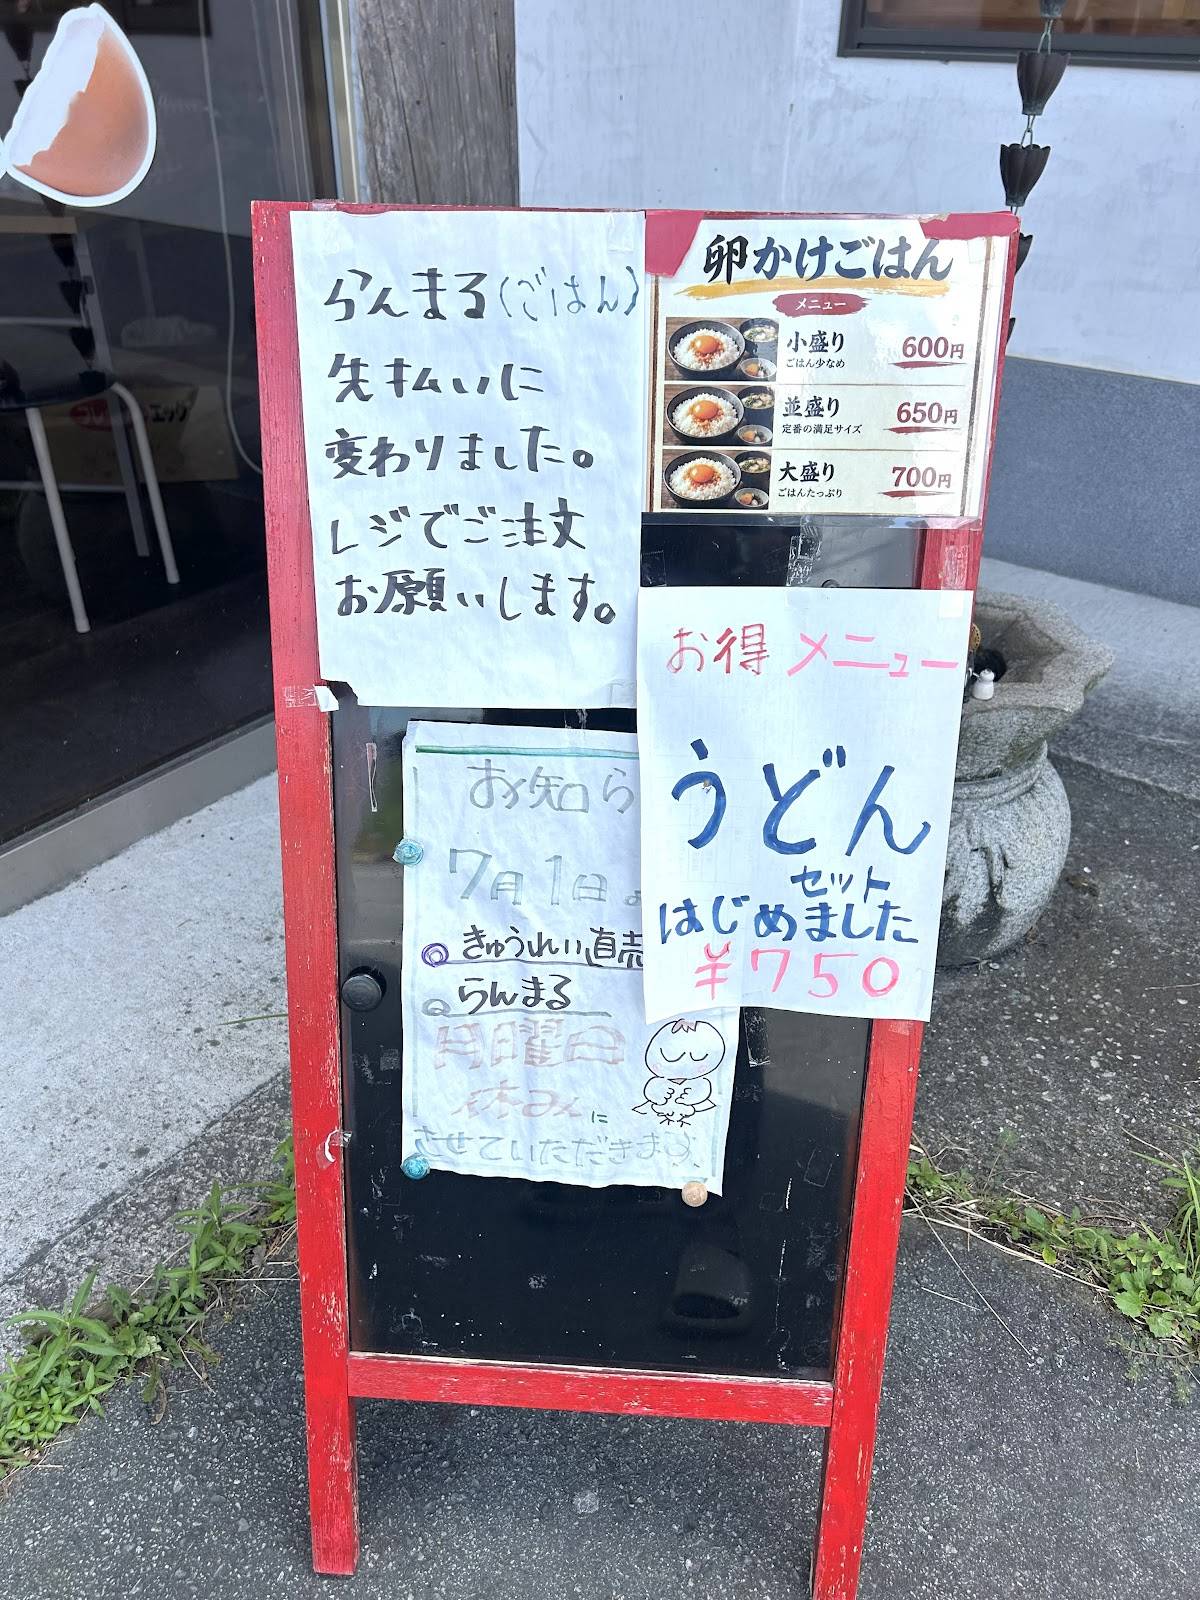 らんまる(ごはん)
先払いに
変わりました。
レジでご注文
お願いします。
卵かけごはん
メニュー
小盛り 600円
ごはん少なめ
並盛り 650円
定番の満足サイズ
大盛り 700円
ごはんたっぷり
お得メニュー
うどん
セット
はじめました
¥750
お知ら
7月1日よ
きゅうれい直売
らんまる
月曜日
休みに
させていただきます。